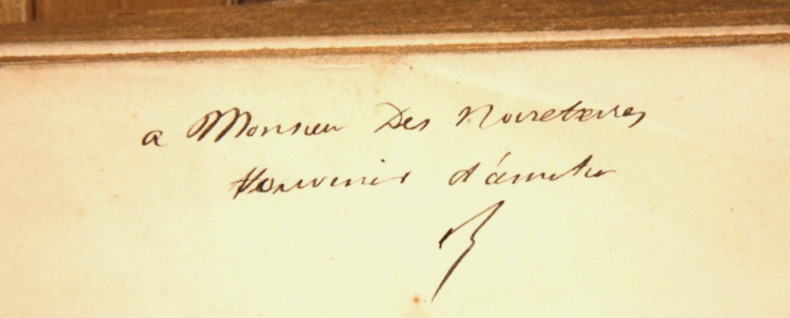 a Monsieur Des Noireterres
Souvenir d'amitié